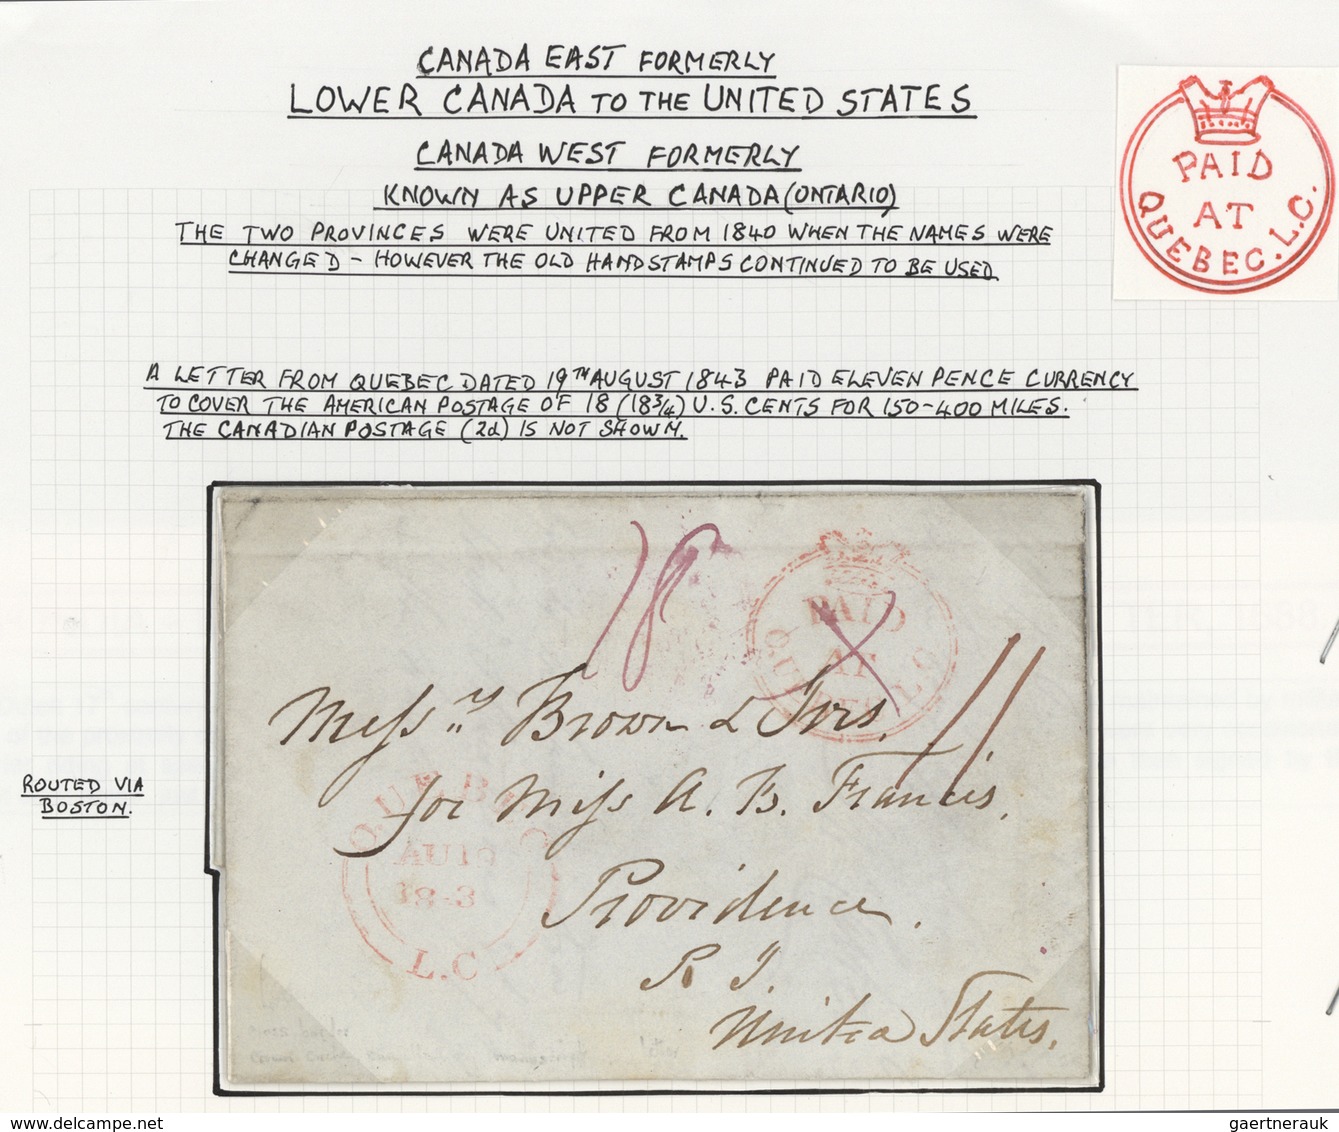 CANADA EAST FORMERLY
LOWER CANADA TO THE UNITED STATES
CANADA WEST FORMERLY
KNOWN AS UPPER CANADA (ONTARIO)
THE TWO PROVINCES WERE UNITED FROM 1840 WHEN THE NAMES WERE
CHANGED - HOWEVER THE OLD HANDSTAMPS CONTINUED TO BE USED
PAID
AT
QUEBEC. L.C.
A LETTER FROM QUEBEC DATED 19TH AUGUST 1843 PAID ELEVEN PENCE CURRENCY
TO COVER THE AMERICAN POSTAGE OF 18 (18 3/4) U.S. CENTS FOR 150-400 MILES.
THE CANADIAN POSTAGE (2d) IS NOT SHOWN.
18
PAID
AT
QUEBEC L.C
11
Messrs Brown & Ives.
for Miss A. B. Francis,
Providence.
R I.
United States.
QUEBEC
AU 19
18 3
L.C
ROUTED VIA
BOSTON.
www.delcampe.net
gaertnerauk